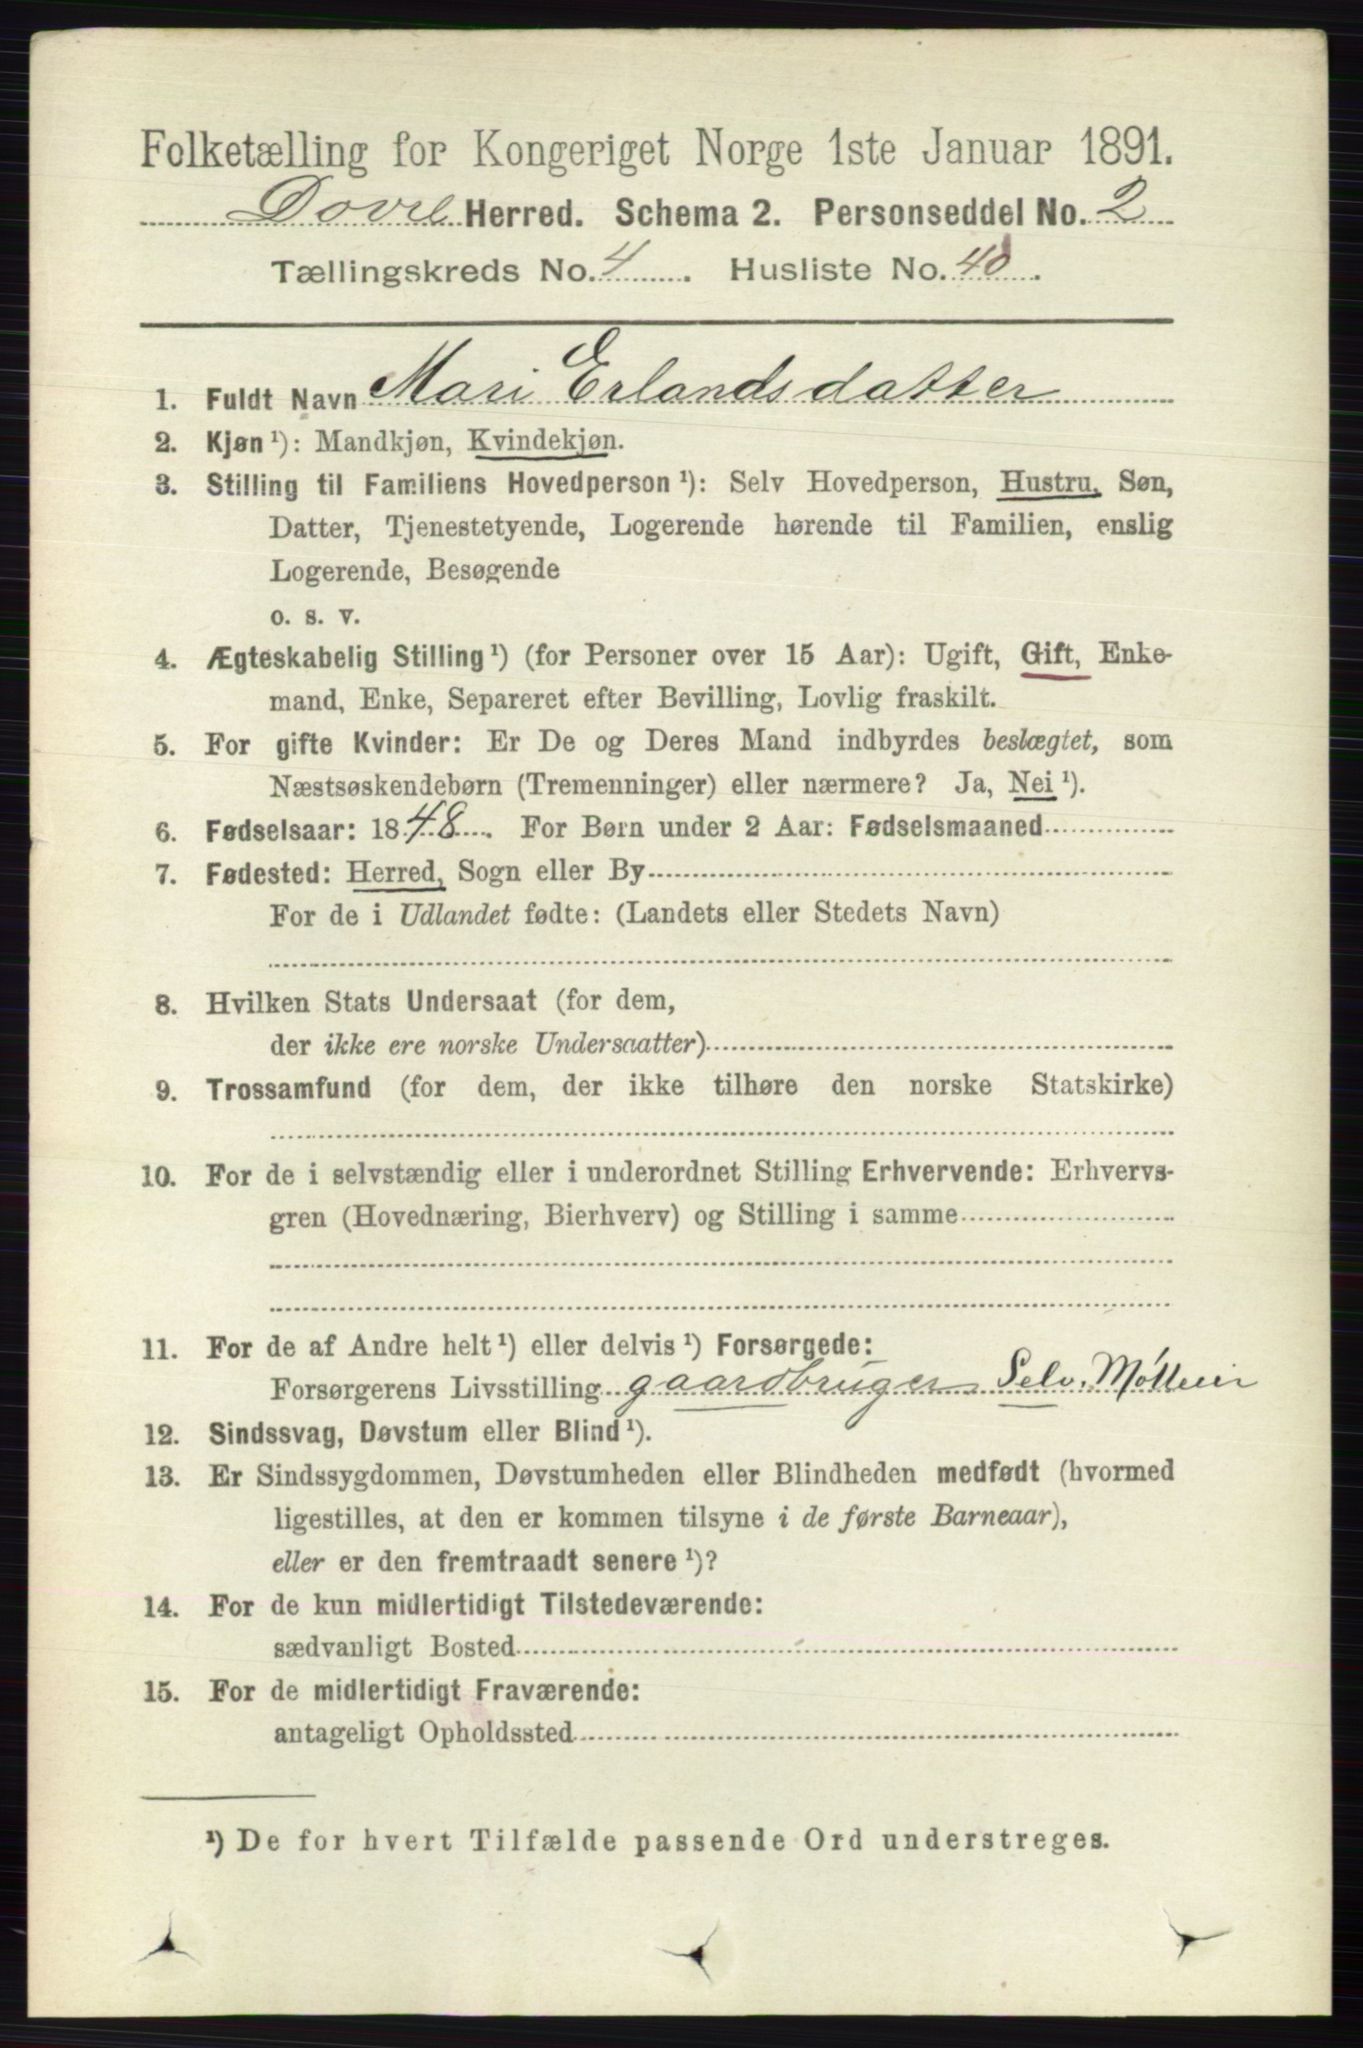 Folketælling for Kongeriget Norge 1ste Januar 1891.
Dovre Herred. Schema 2. Personseddel No. 2
Tællingskreds No. 4. Husliste No. 40.
1. Fuldt Navn Mari Erlandsdatter
2. Kjøn ¹): Mandkjøn, Kvindekjøn.
3. Stilling til Familiens Hovedperson ¹): Selv Hovedperson, Hustru, Søn,
Datter, Tjenestetyende, Logerende hørende til Familien, enslig
Logerende, Besøgende
o. s. v.
4. Ægteskabelig Stilling ¹) (for Personer over 15 Aar): Ugift, Gift, Enke-
mand, Enke, Separeret efter Bevilling, Lovlig fraskilt.
5. For gifte Kvinder: Er De og Deres Mand indbyrdes beslægtet, som
Næstsøskendebørn (Tremenninger) eller nærmere? Ja, Nei ¹).
6. Fødselsaar: 1848. For Børn under 2 Aar: Fødselsmaaned
7. Fødested: Herred, Sogn eller By
For de i Udlandet fødte: (Landets eller Stedets Navn)
8. Hvilken Stats Undersaat (for dem,
der ikke ere norske Undersaatter)
9. Trossamfund (for dem, der ikke tilhøre den norske Statskirke)
10. For de i selvstændig eller i underordnet Stilling Erhvervende: Erhvervs-
gren (Hovednæring, Bierhverv) og Stilling i samme
11. For de af Andre helt ¹) eller delvis ¹) Forsørgede:
Forsørgerens Livsstilling gaardbruger Selv.
12. Sindssvag, Døvstum eller Blind ¹).
13. Er Sindssygdommen, Døvstumheden eller Blindheden medfødt (hvormed
ligestilles, at den er kommen tilsyne i de første Barneaar),
eller er den fremtraadt senere ¹)?
14. For de kun midlertidigt Tilstedeværende:
sædvanligt Bosted
15. For de midlertidigt Fraværende:
antageligt Opholdssted
¹) De for hvert Tilfælde passende Ord understreges.